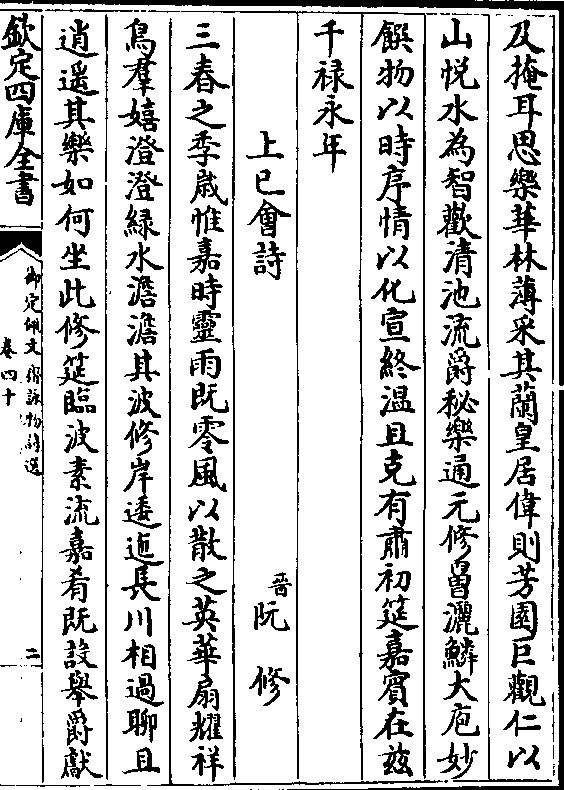 及掩耳思樂華林薄采其蘭皇居偉則芳園巨觀仁以
山悦水為智歡清池流爵秘樂通元修罾灑鱗大庖妙
饌物以時序情以化宣終温且克有肅初筵嘉賓在兹
千禄永年
上巳會詩
晉 阮修
三春之季歲惟嘉時靈雨既零風以散之英華扇耀祥
鳥羣嬉澄澄緑水澹澹其波修岸逶迤長川相過聊且
逍遥其樂如何坐此修筵臨波素流嘉肴既設舉爵獻
欽定四庫全書
御定佩文齋詠物詩選
卷四十
二